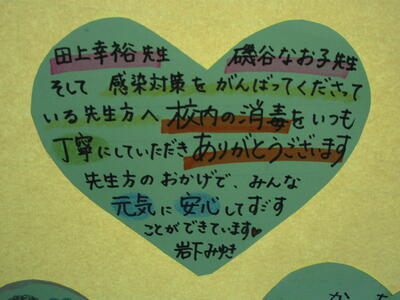 田上幸裕先生 磯谷なお子先生
そして 感染対策をがんばってくださって
いる先生方へ 校内の消毒をいつも
丁寧にしていただき ありがとうございます
先生方のおかげで、みんな
元気に安心してすごす
ことができています♥
岩下みゆき